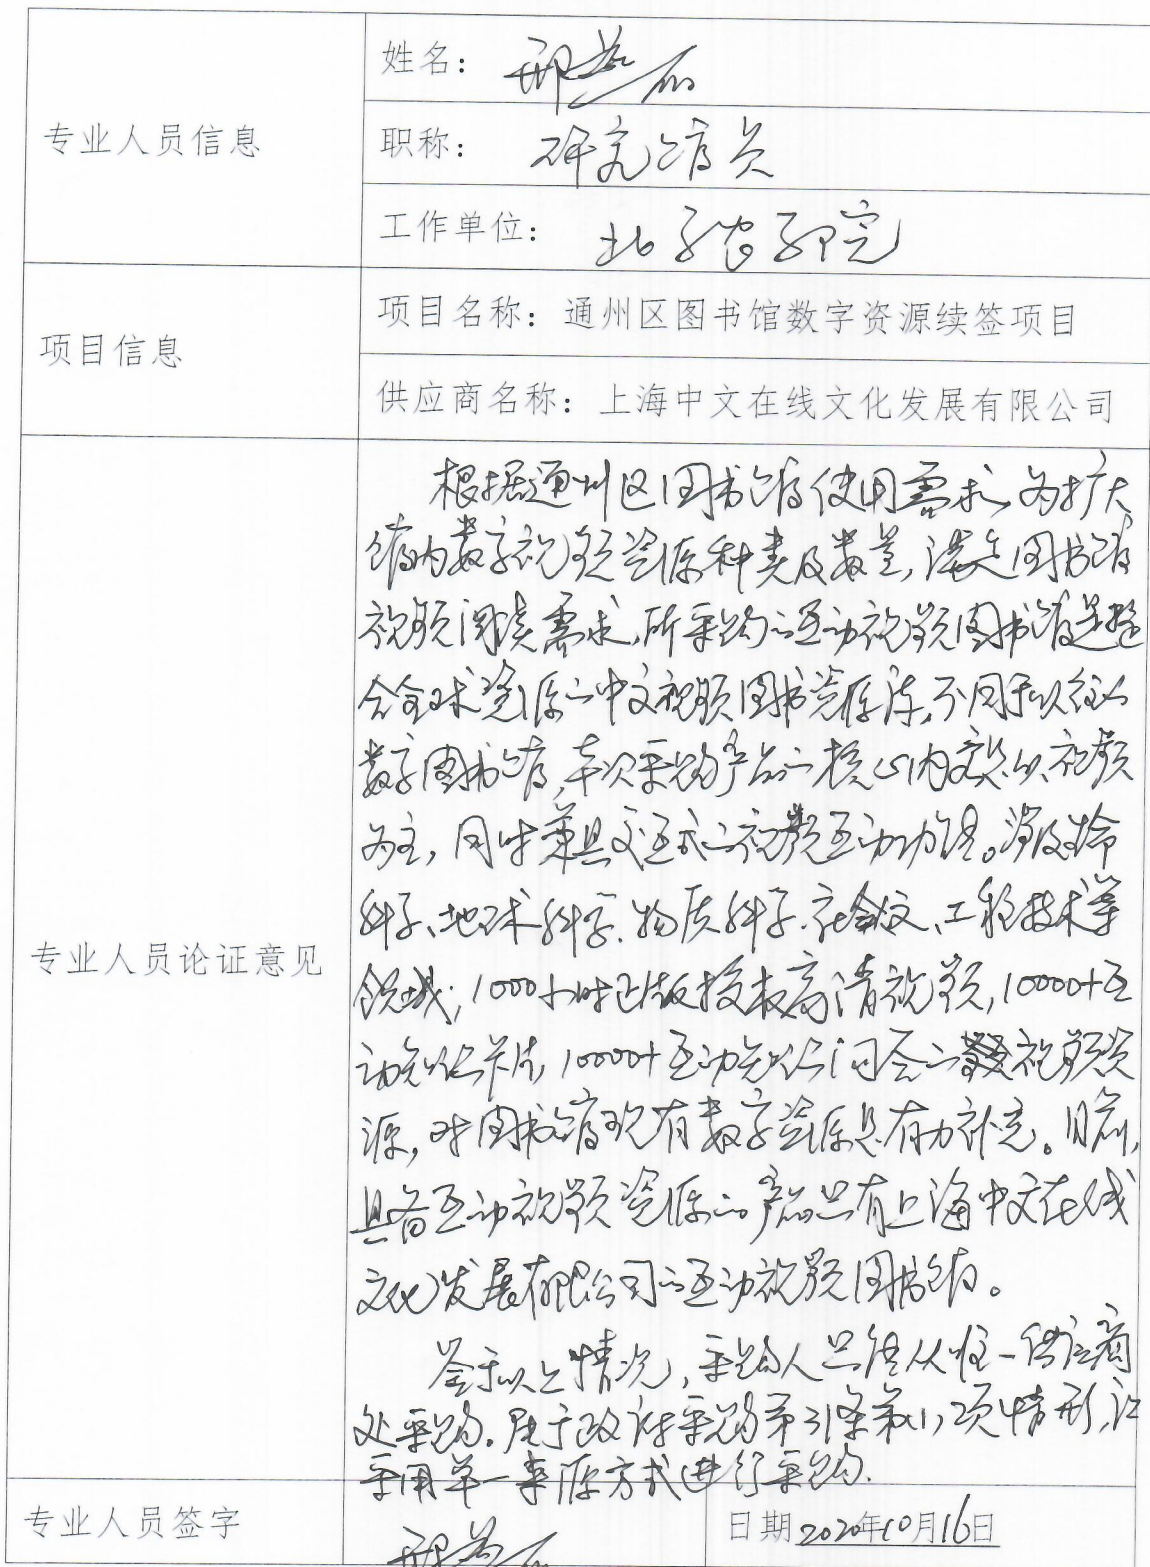 专业人员信息
姓名：邢燕
职称：研究馆员
工作单位：北京农学院
项目信息
项目名称：通州区图书馆数字资源续签项目
供应商名称：上海中文在线文化发展有限公司
专业人员论证意见
根据通州区图书馆使用需求，为扩大
馆内数字视频资源种类及数量，满足图书馆
视频阅读需求，所采购的互动视频图书馆是整
合全球资源的中文视频图书资源库，不同于以往的
数字图书馆，本次采购产品的核心内容是以视频
为主，同时兼具交互式的视频互动功能。涉及生命
科学、地球科学、物质科学、社会人文、工程技术等
领域；1000小时正版授权高清视频，10000+互
动知识卡片，10000+互动知识问答的视频资
源，对图书馆现有数字资源是有力补充。目前，
具备互动视频资源的产品只有上海中文在线
文化发展有限公司的互动视频图书馆。
鉴于以上情况，采购人只能从唯一供应商
处采购。属于政府采购第31条第(1)项情形，应
采用单一来源方式进行采购。
专业人员签字
日期2020年10月16日